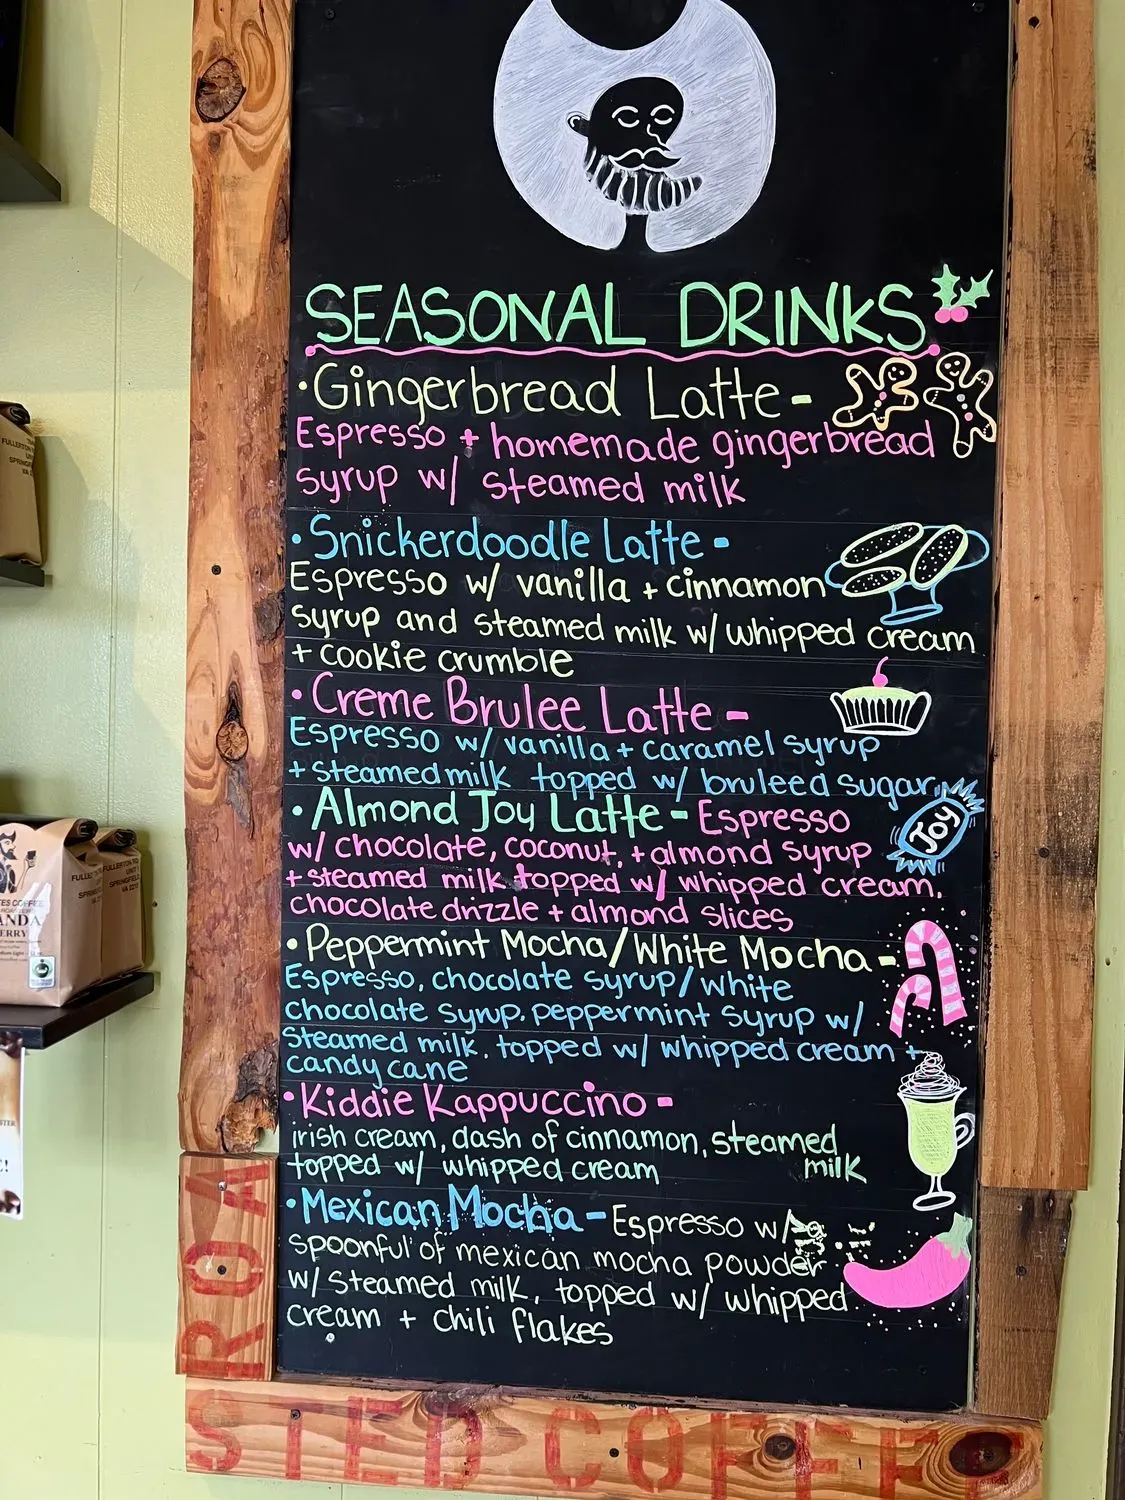 SEASONAL DRINKS
•Gingerbread Latte-
Espresso + homemade gingerbread
syrup w/ steamed milk
•Snickerdoodle Latte-
Espresso w/ vanilla + cinnamon
syrup and steamed milk w/ whipped cream
+ cookie crumble
•Creme Brulee Latte-
Espresso w/ vanilla + caramel syrup
+ steamed milk topped w/ bruleed sugar
•Almond Joy Latte- Espresso
w/ chocolate, coconut, + almond syrup
+ steamed milk topped w/ whipped cream,
chocolate drizzle + almond slices
Joy
•Peppermint Mocha/White Mocha-
Espresso, chocolate syrup/white
chocolate syrup, peppermint syrup w/
steamed milk, topped w/ whipped cream +
candy cane
•Kiddie Kappuccino-
irish cream, dash of cinnamon, steamed
milk
topped w/ whipped cream
•Mexican Mocha- Espresso w/
spoonful of mexican mocha powder
w/ steamed milk, topped w/ whipped
cream + chili flakes
ROA
STED COFFEE
FULLERTON RD
UNIT
SPRINGFIELD
VA 221
ANDA
ERRY